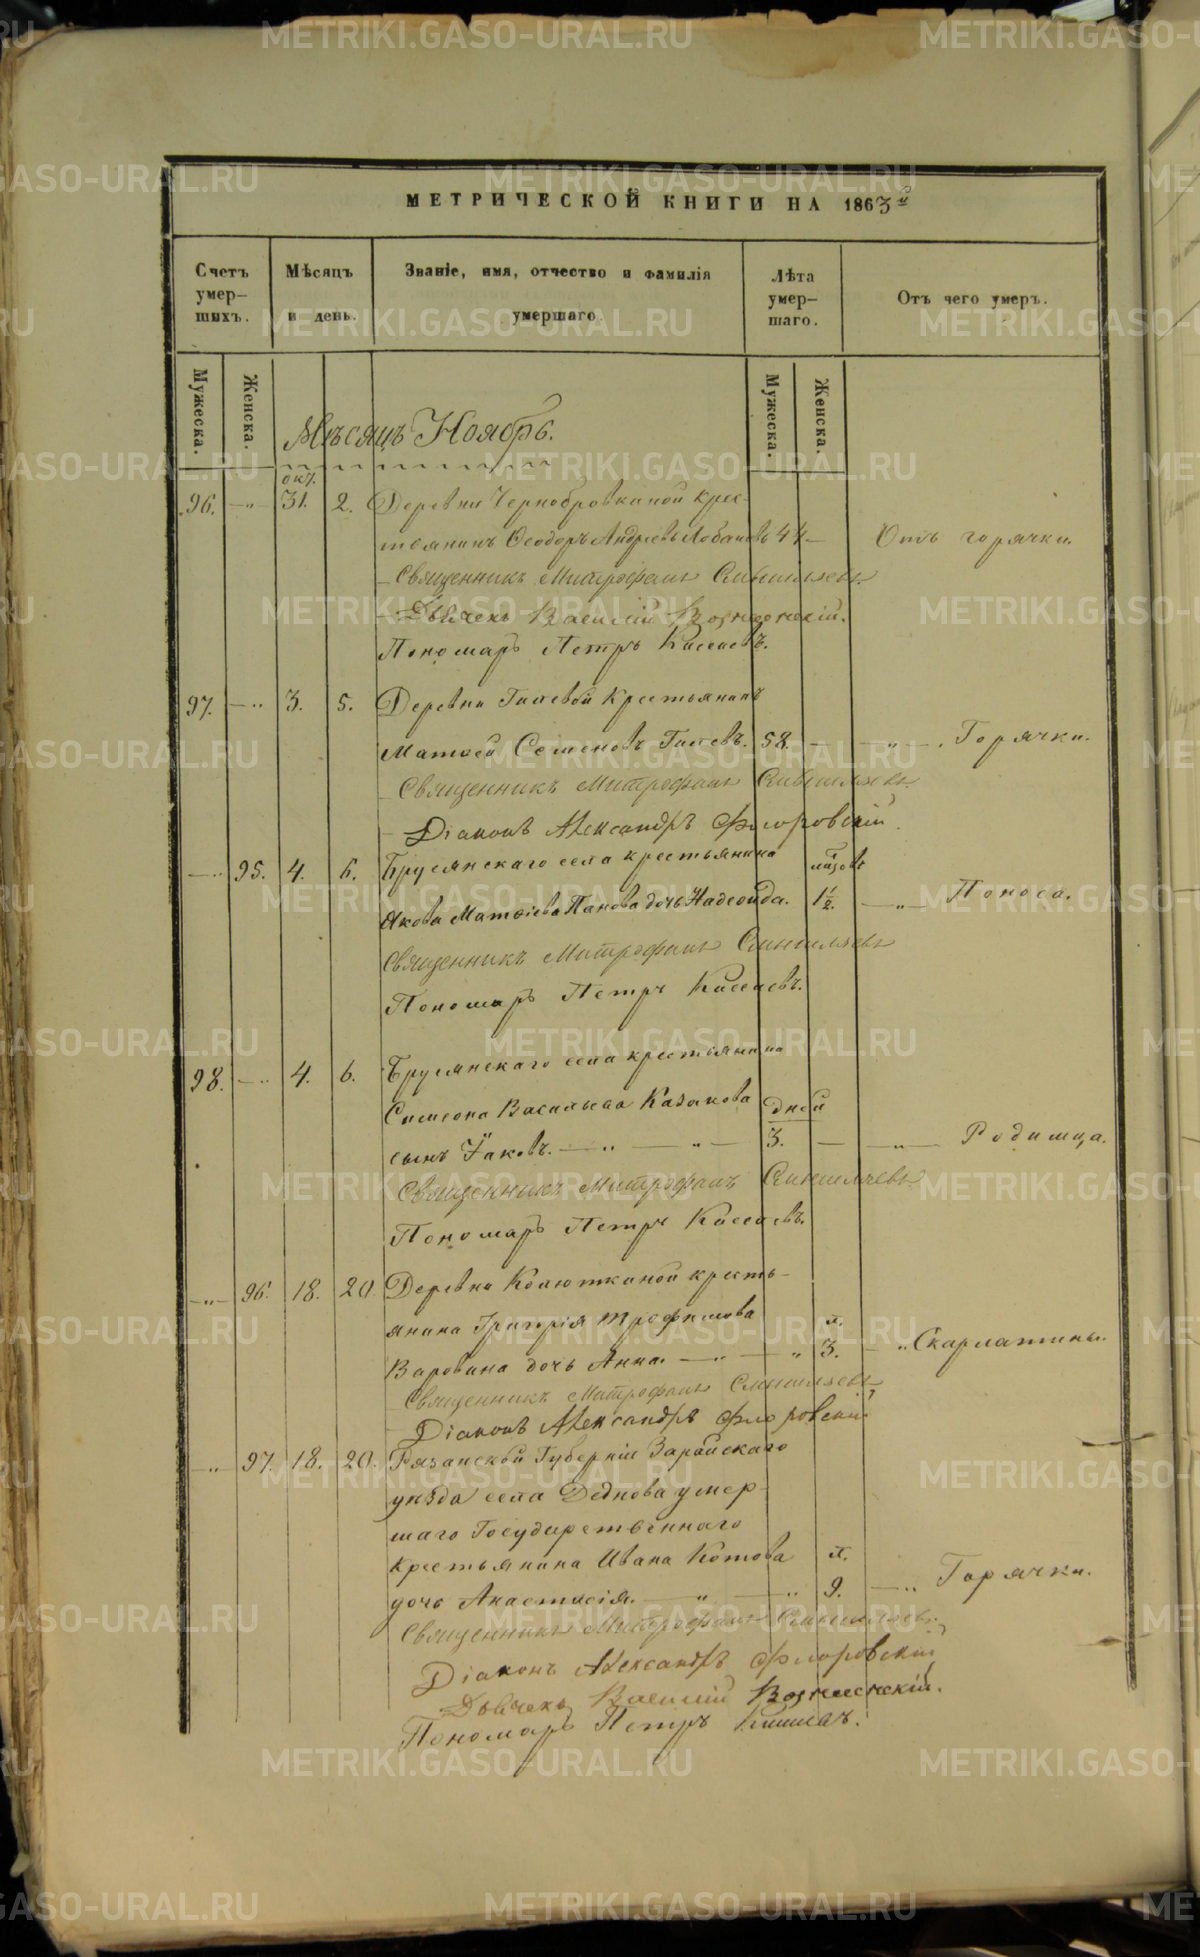 МЕТРИЧЕСКОЙ КНИГИ НА 1863й
Счетъ умер-шихъ.
Мѣсяцъ и день.
Званіе, имя, отчество и фамилія умершаго.
Лѣта умер-шаго.
Отъ чего умеръ.
Мужеска.
Женска.
Мужеска.
Женска.
Мѣсяцъ Ноябрь.
окт.
96. — " — 31. 2. Деревни Чернобровкиной крес-
тьянинъ Ѳеодоръ Андреевъ Лобановъ 44 — Отъ горячки.
Священникъ Митрофанъ
Дьячекъ Василій Вознесенскій.
Пономарь Петръ
97. — " 3. 5. Деревни Гилевой Крестьянинъ
Матѳей Семеновъ Гилевъ. 58. — — " — Горячки.
Священникъ Митрофанъ
Діаконъ Александръ Флоровскій
— " 95. 4. 6. Бруснянскаго села крестьянина
Якова Матѳіева Панова дочь Надежда. 1½. — " — Поноса.
Священникъ Митрофанъ
Пономарь Петръ
98. — " 4. 6. Бруснянскаго села крестьянина
Симеона Васильева Казакова дней
сынъ Іаковъ. — " — " — 3. — — " — Родимца.
Священникъ Митрофанъ
Пономарь Петръ
— " — 96. 18. 20. Деревни Колюткиной кресть-
янина Григорія Трофимова л.
Варовина дочь Анна. — " — " 3. — " Скарлатины.
Священникъ Митрофанъ
Діаконъ Александръ Флоровскій
— " 97. 18. 20. Рязанской Губерніи Зарайскаго
уѣзда села Дѣднова умер-
шаго Государственнаго
крестьянина Ивана Котова л.
дочь Анастасія. — " — " 9. — " Горячки.
Священникъ Митрофанъ
Діаконъ Александръ Флоровскій
Дьячекъ Василій Вознесенскій.
Пономарь Петръ
METRIKI.GASO-URAL.RU